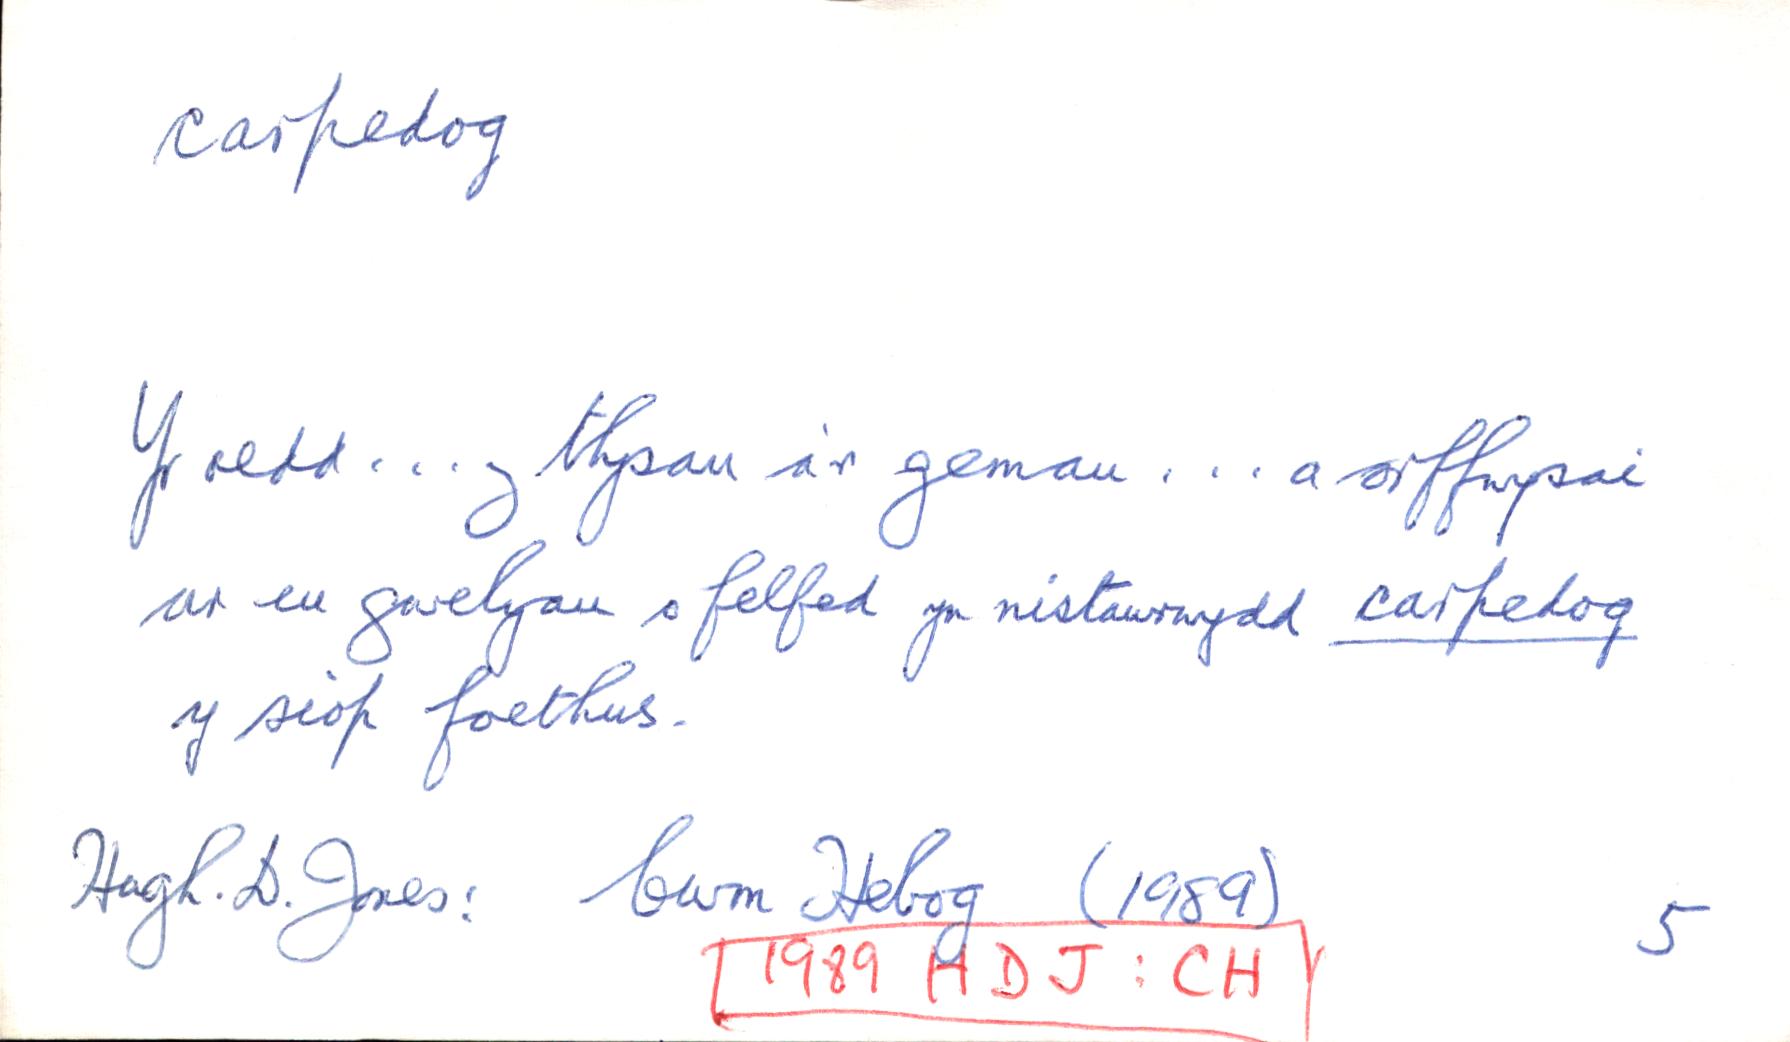 carpedog
Yr oedd . . . y thlysau a'r gemau . . . a orffwysai
ar eu gwelyau o felfed yn nistawrwydd carpedog
y siop foethus.
Hugh. D. Jones: Cwm Hebog (1989) 5
1989 HDJ : CH